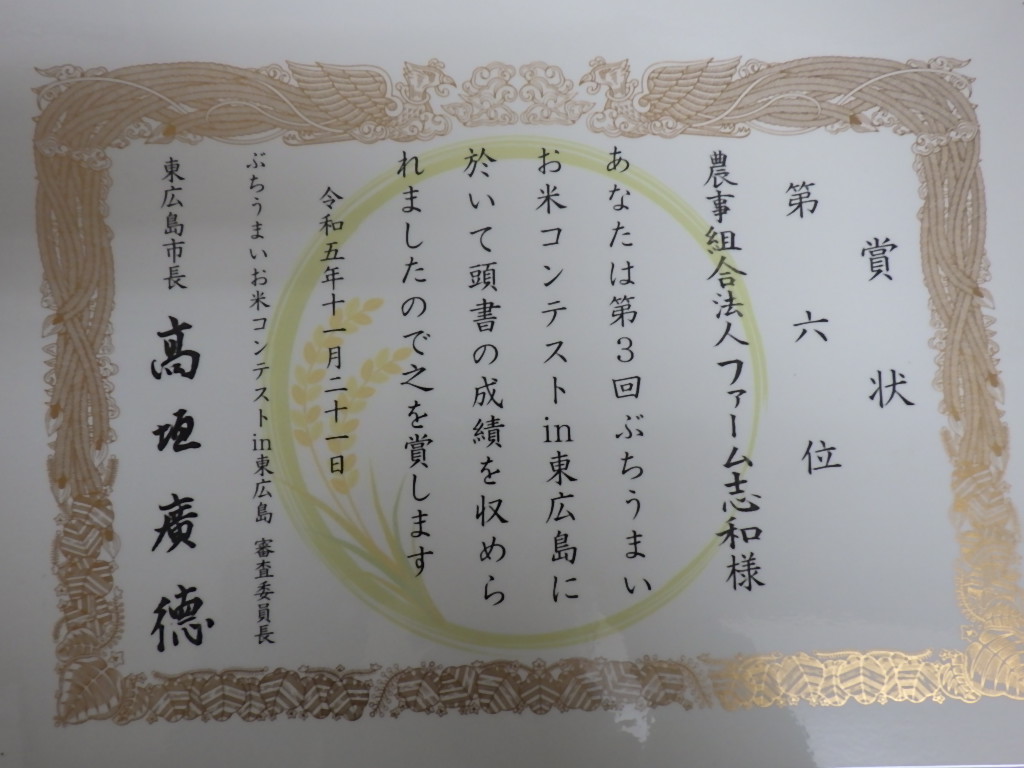 賞状
第六位
農事組合法人ファーム志和様
あなたは第３回ぶちうまい
お米コンテストin東広島に
於いて頭書の成績を収めら
れましたので之を賞します
令和五年十一月二十一日
ぶちうまいお米コンテストin東広島 審査委員長
東広島市長 髙垣廣徳